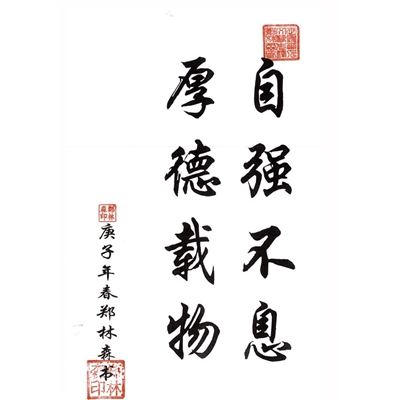 自强不息
厚德载物
庚子年春郑林森书